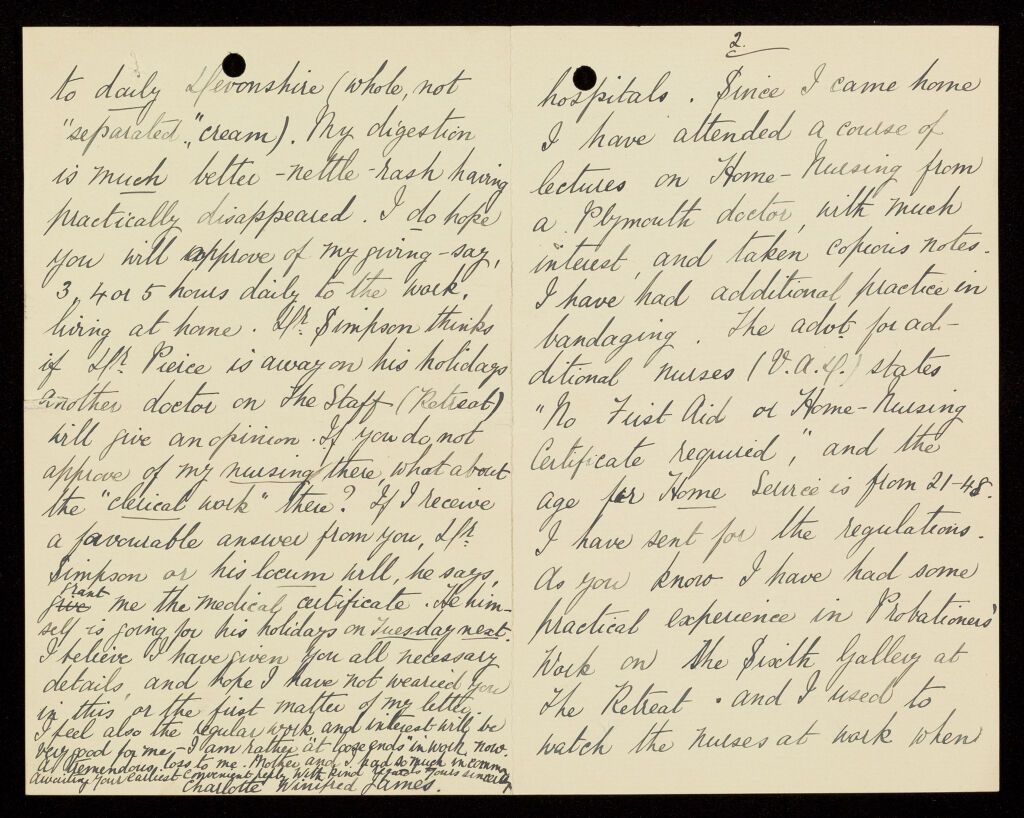 to daily Devonshire (whole, not
"separated," cream). My digestion
is much better - nettle-rash having
practically disappeared. I do hope
you will approve of my giving - say,
3, 4 or 5 hours daily to the work,
living at home. Dr. Simpson thinks
if Dr. Pierce is away on his holidays
another doctor on the Staff (Retreat)
will give an opinion. If you do not
approve of my nursing there, what about
the "clerical work" there? If I receive
a favourable answer from you, Dr.
Simpson or his locum will, he says,
grant
give me the medical certificate. He him-
self is going for his holidays on Tuesday next.
I believe I have given you all necessary
details, and hope I have not wearied you
in this, or the first matter of my letter.
I feel also the regular work and interest will be
very good for me, - I am rather "at loose ends" in work, now.
A tremendous loss to me. Mother and I had so much in common
Awaiting your earliest convenient reply With kind regards Yours sincerely
Charlotte Winifred James.
2.
hospitals. Since I came home
I have attended a course of
lectures on Home-Nursing from
a Plymouth doctor, with much
interest, and taken copious notes.
I have had additional practice in
bandaging. The advt. for ad-
ditional nurses (V.A.D.) states
"No First Aid or Home-Nursing
Certificate required," and the
age for Home Service is from 21-48.
I have sent for the regulations.
As you know I have had some
practical experience in Probationers'
Work on the Sixth Gallery at
The Retreat. and I used to
watch the nurses at work when